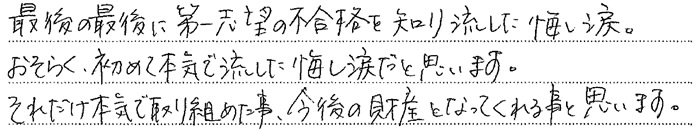 最後の最後に第一志望の不合格を知り流した悔し涙。
おそらく、初めて本気で流した悔し涙だと思います。
それだけ本気で取り組めた事、今後の財産となってくれる事と思います。